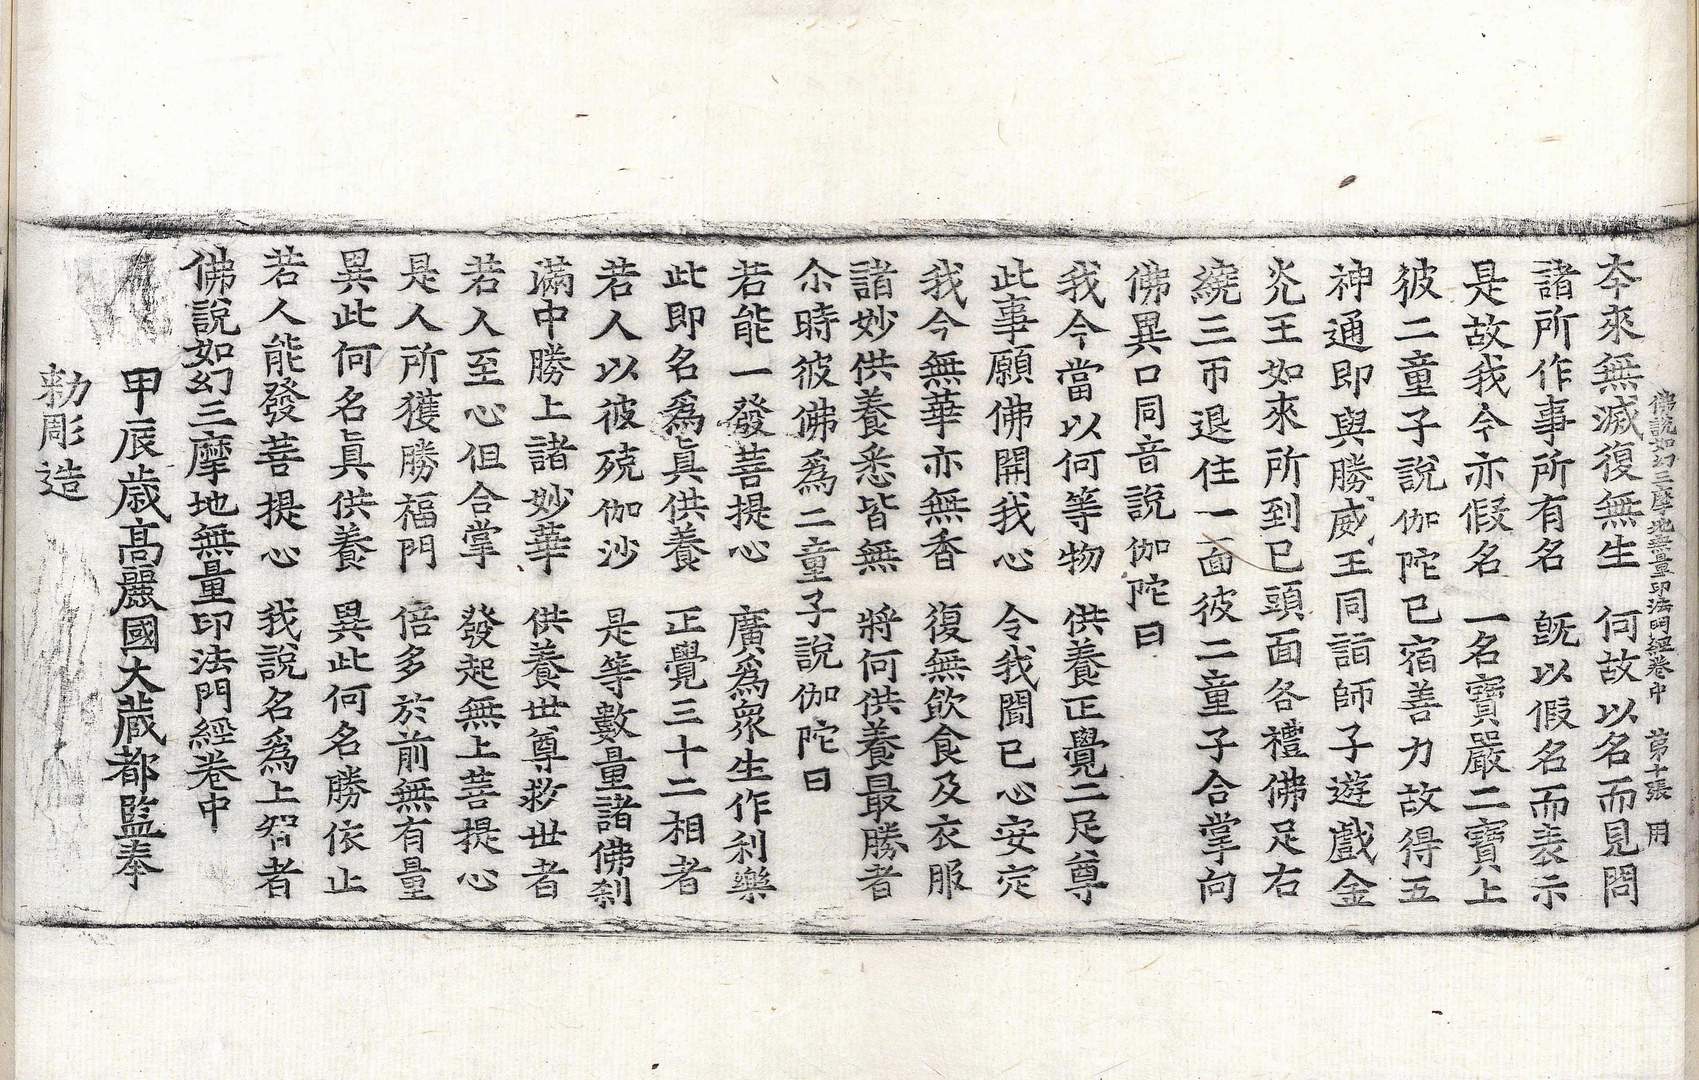 佛說如幻三摩地無量印法門經卷中　第十張　用
夲來無滅復無生　何故以名而見問
諸所作事所有名　旣以假名而表示
是故我今亦假名　一名寶嚴二寶上
彼二童子說伽陀已宿善力故得五
神通即與勝威王同詣師子遊戲金
光王如來所到已頭面各禮佛足右
繞三帀退住一面彼二童子合掌向
佛異口同音說伽陀曰
我今當以何等物　供養正覺二足尊
此事願佛開我心　令我聞已心安定
我今無華亦無香　復無飮食及衣服
諸妙供養悉皆無　將何供養最勝者
尒時彼佛爲二童子說伽陀曰
若能一發菩提心　廣爲衆生作利樂
此即名爲眞供養　正覺三十二相者
若人以彼殑伽沙　是等數量諸佛刹
滿中勝上諸妙華　供養世尊救世者
若人至心但合掌　發起無上菩提心
是人所獲勝福門　倍多於前無有量
異此何名眞供養　異此何名勝依止
若人能發菩提心　我說名爲上智者
佛說如幻三摩地無量印法門經卷中
甲辰歳高麗國大藏都監奉
勅彫造